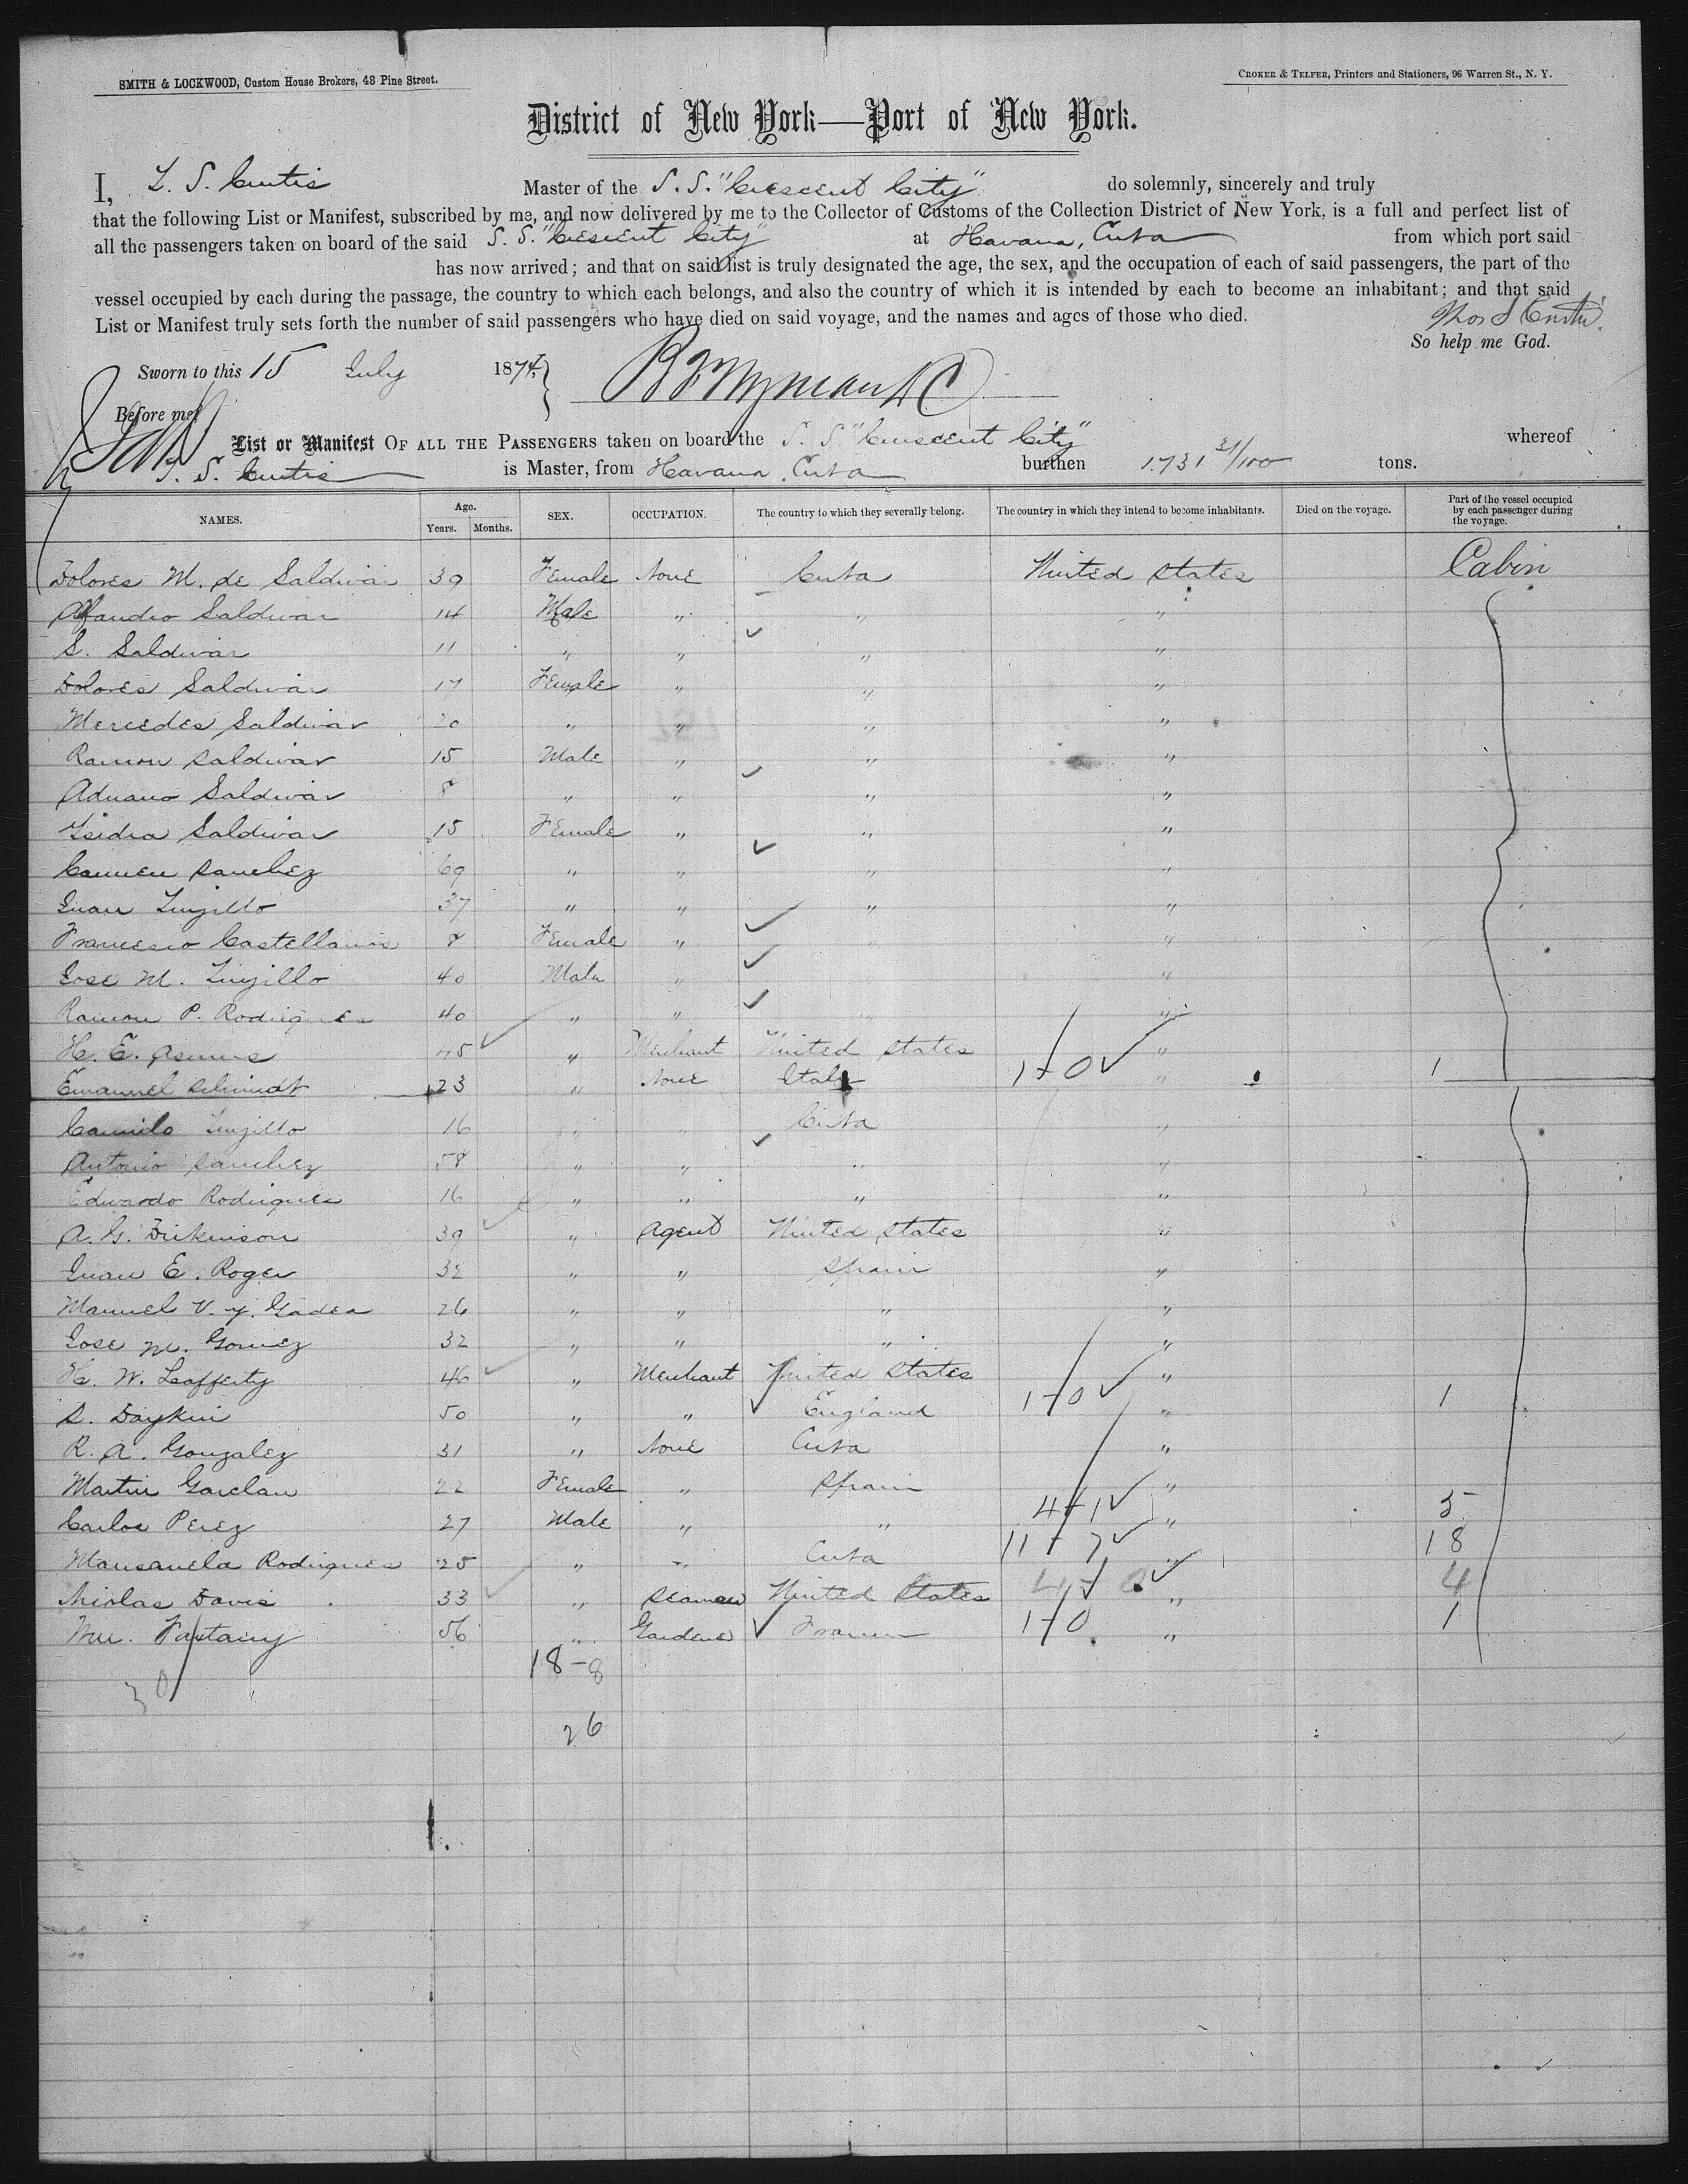 SMITH & LOCKWOOD, Custom House Brokers, 48 Pine Street.
CROKER & TELFER, Printers and Stationers, 96 Warren St., N. Y.
District of New York—Port of New York.
I, T. S. Curtis Master of the S. S. "Crescent City" do solemnly, sincerely and truly
that the following List or Manifest, subscribed by me, and now delivered by me to the Collector of Customs of the Collection District of New York, is a full and perfect list of
all the passengers taken on board of the said S. S. "Crescent City" at Havana, Cuba from which port said
has now arrived; and that on said list is truly designated the age, the sex, and the occupation of each of said passengers, the part of the
vessel occupied by each during the passage, the country to which each belongs, and also the country of which it is intended by each to become an inhabitant; and that said
List or Manifest truly sets forth the number of said passengers who have died on said voyage, and the names and ages of those who died.
Thos S Curtis
So help me God.
Sworn to this 15 July 1874
Before me
List or Manifest OF ALL THE PASSENGERS taken on board the S. S. "Crescent City" whereof
T. S. Curtis is Master, from Havana, Cuba burthen 1.731 31/100 tons.
NAMES. Age. Years. Months. SEX. OCCUPATION. The country to which they severally belong. The country in which they intend to become inhabitants. Died on the voyage. Part of the vessel occupied by each passenger during the voyage.
Dolores M. de Saldivar 39 Female None Cuba United States Cabin
Saldivar 14 Male " " "
S. Saldivar 11 " " " "
Dolores Saldivar 17 Female " " "
Mercedes Saldivar 20 " " " "
Ramon Saldivar 15 Male " " "
Adriano Saldivar 8 " " " "
Ysidra Saldivar 15 Female " " "
Carmen Sanchez 69 " " " "
Juan Trujillo 37 " " " "
Francisco Castellanos 8 Female " " "
Jose M. Trujillo 40 Male " " "
Ramon P. Rodriguez 40 " " " "
H. E. Asmus 45 " Merchant United States "
Emanuel Schmidt 23 " None Italy 1-0 " 1
Camilo Trujillo 16 " " Cuba "
Antonio Sanchez 58 " " " "
Edwardo Rodriguez 16 " " " "
A. G. Dickinson 39 " Agent United States "
Juan E. Roger 32 " " Spain "
Manuel V. y. Gadea 26 " " " "
Jose M. Gomez 32 " " " "
H. W. Lafferty 46 " Merchant United States "
S. Daykin 50 " " England 1-0 " 1
R. A. Gonzalez 31 " None Cuba "
Martin 22 Female " Spain "
Carlos Perez 27 Male " " 4-1 " 5
Mansanela Rodriguez 25 " " Cuba 11-7 " 18
Nicolas Davis 33 " Seaman United States 4-0 " 4
Wm. 56 " Gardener France 1-0 " 1
18-8
30
26